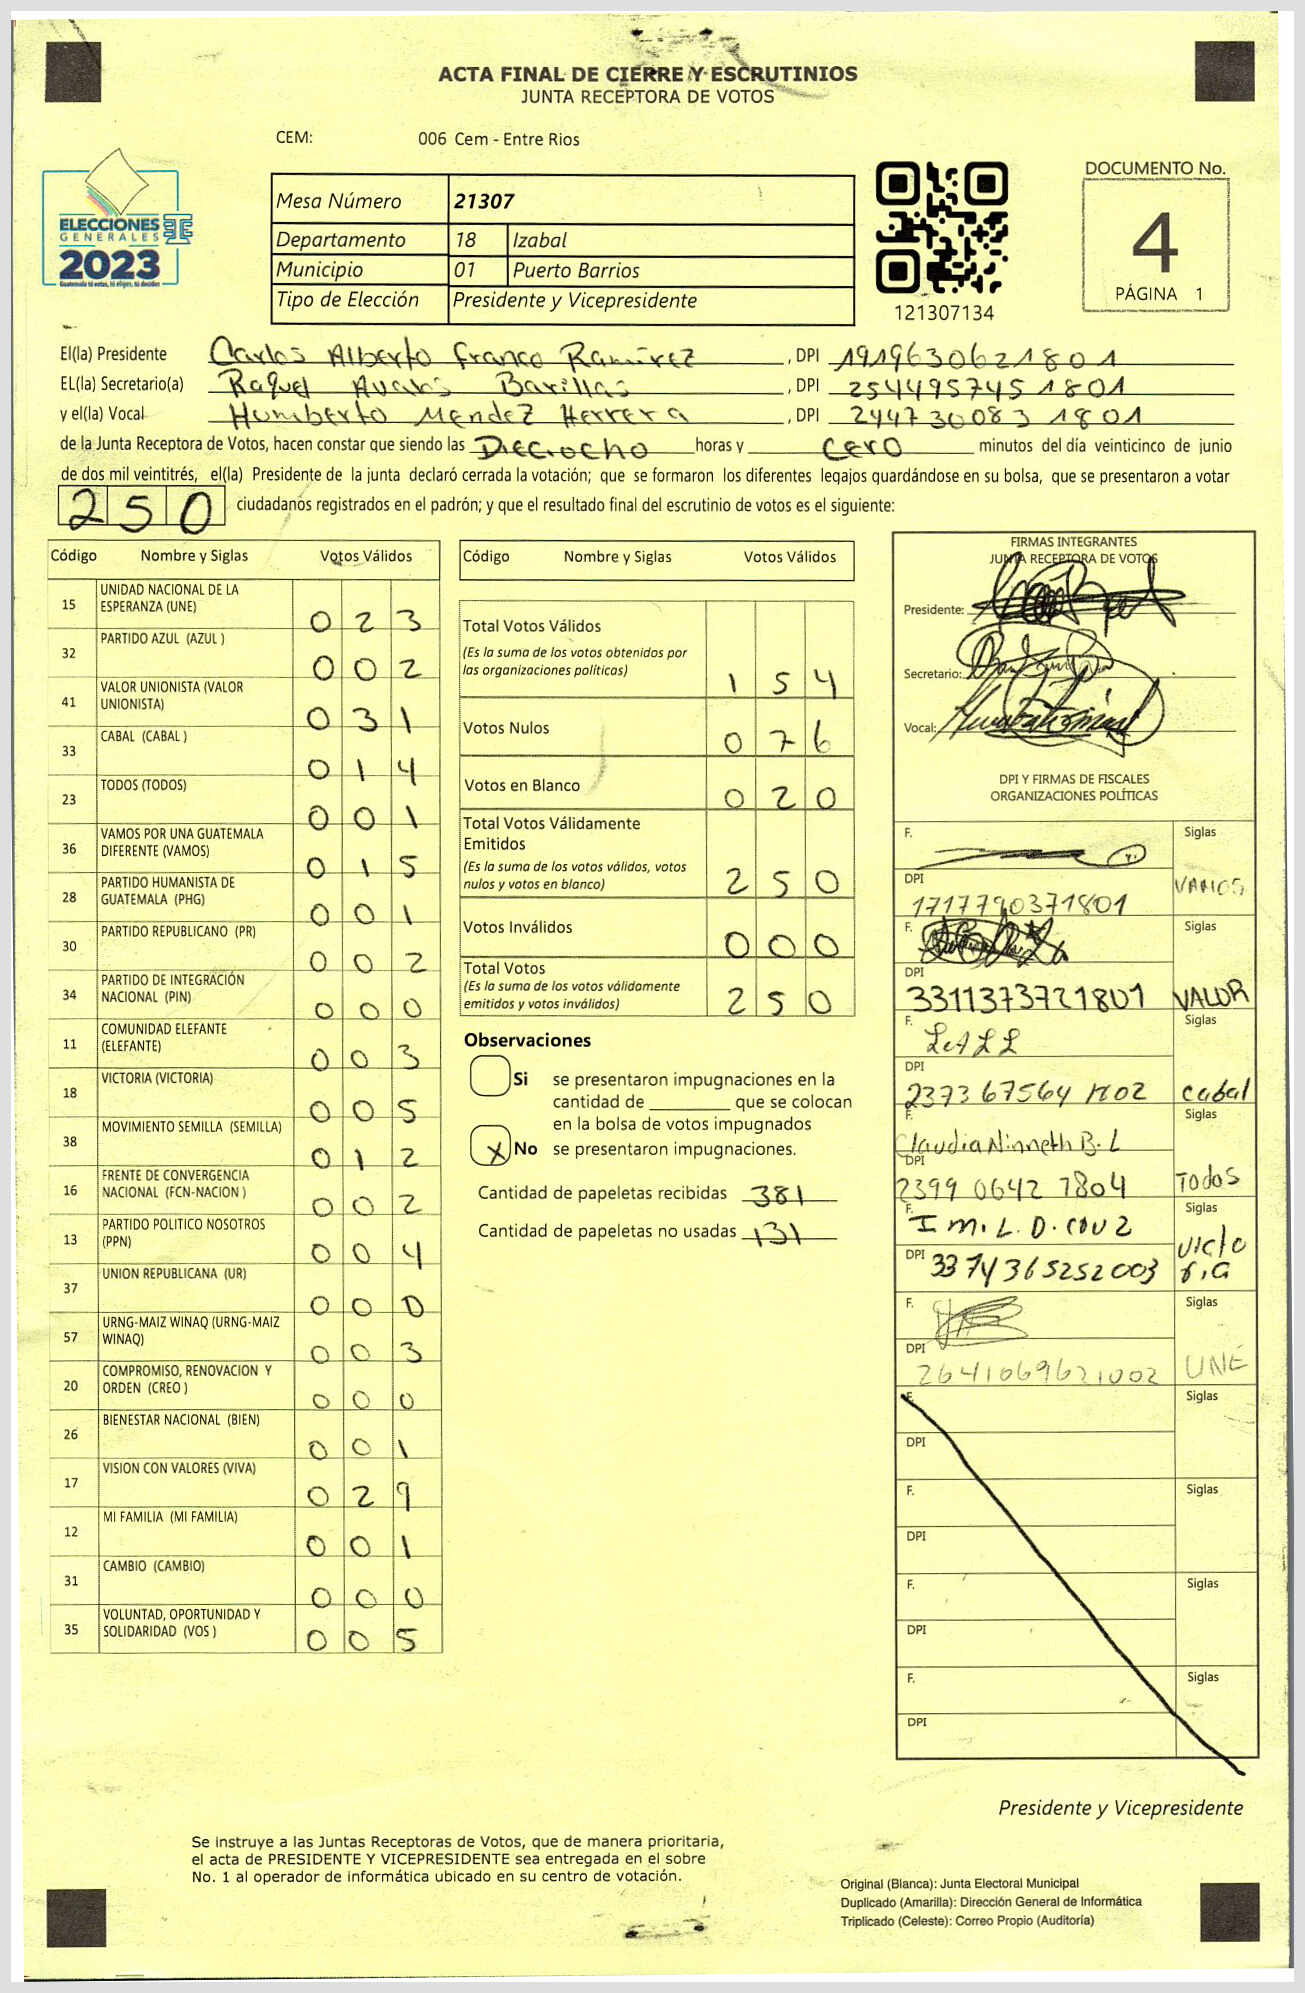 ACTA FINAL DE CIERRE Y ESCRUTINIOS
JUNTA RECEPTORA DE VOTOS
CEM: 006 Cem - Entre Rios
ELECCIONES
GENERALES
2023
Guatemala tú votas, tú eliges, tú decides
Mesa Número 21307
Departamento 18 Izabal
Municipio 01 Puerto Barrios
Tipo de Elección Presidente y Vicepresidente
121307134
DOCUMENTO No.
4
PÁGINA 1
El(la) Presidente Carlos Alberto Franco Ramírez , DPI 1919630621801
EL(la) Secretario(a) Raquel Avalos Barillas , DPI 2544957451801
y el(la) Vocal Humberto Mendez Herrera , DPI 2447300831801
de la Junta Receptora de Votos, hacen constar que siendo las Dieciocho horas y cero minutos del día veinticinco de junio
de dos mil veintitrés, el(la) Presidente de la junta declaró cerrada la votación; que se formaron los diferentes legajos guardándose en su bolsa, que se presentaron a votar
250 ciudadanos registrados en el padrón; y que el resultado final del escrutinio de votos es el siguiente:
Código Nombre y Siglas Votos Válidos
15 UNIDAD NACIONAL DE LA
ESPERANZA (UNE) 023
32 PARTIDO AZUL (AZUL ) 002
41 VALOR UNIONISTA (VALOR
UNIONISTA) 031
33 CABAL (CABAL ) 014
23 TODOS (TODOS) 001
36 VAMOS POR UNA GUATEMALA
DIFERENTE (VAMOS) 015
28 PARTIDO HUMANISTA DE
GUATEMALA (PHG) 001
30 PARTIDO REPUBLICANO (PR) 002
34 PARTIDO DE INTEGRACIÓN
NACIONAL (PIN) 000
11 COMUNIDAD ELEFANTE
(ELEFANTE) 003
18 VICTORIA (VICTORIA) 005
38 MOVIMIENTO SEMILLA (SEMILLA) 012
16 FRENTE DE CONVERGENCIA
NACIONAL (FCN-NACION ) 002
13 PARTIDO POLITICO NOSOTROS
(PPN) 004
37 UNION REPUBLICANA (UR) 000
57 URNG-MAIZ WINAQ (URNG-MAIZ
WINAQ) 003
20 COMPROMISO, RENOVACION Y
ORDEN (CREO ) 000
26 BIENESTAR NACIONAL (BIEN) 001
17 VISION CON VALORES (VIVA) 029
12 MI FAMILIA (MI FAMILIA) 001
31 CAMBIO (CAMBIO) 000
35 VOLUNTAD, OPORTUNIDAD Y
SOLIDARIDAD (VOS ) 005
Código Nombre y Siglas Votos Válidos
Total Votos Válidos
(Es la suma de los votos obtenidos por
las organizaciones políticas) 154
Votos Nulos 076
Votos en Blanco 020
Total Votos Válidamente
Emitidos
(Es la suma de los votos válidos, votos
nulos y votos en blanco) 250
Votos Inválidos 000
Total Votos
(Es la suma de los votos válidamente
emitidos y votos inválidos) 250
Observaciones
Si se presentaron impugnaciones en la
cantidad de ________ que se colocan
en la bolsa de votos impugnados
X No se presentaron impugnaciones.
Cantidad de papeletas recibidas 381
Cantidad de papeletas no usadas 131
FIRMAS INTEGRANTES
JUNTA RECEPTORA DE VOTOS
Presidente:
Secretario:
Vocal:
DPI Y FIRMAS DE FISCALES
ORGANIZACIONES POLÍTICAS
F. Siglas
DPI 1717790371801 VAMOS
F. Siglas
DPI 3311373721801 VALOR
F. Siglas
DPI 237367564 1802 cabal
F. Claudia Ninneth B. L Siglas
DPI 2399 0642 1804 Todos
F. I m. L. D. cruz Siglas
DPI 3374365252003 victo
ria
F. Siglas
DPI 2641069621002 UNE
F. Siglas
DPI
F. Siglas
DPI
F. Siglas
DPI
F. Siglas
DPI
Presidente y Vicepresidente
Se instruye a las Juntas Receptoras de Votos, que de manera prioritaria,
el acta de PRESIDENTE Y VICEPRESIDENTE sea entregada en el sobre
No. 1 al operador de informática ubicado en su centro de votación.
Original (Blanca): Junta Electoral Municipal
Duplicado (Amarilla): Dirección General de Informática
Triplicado (Celeste): Correo Propio (Auditoría)